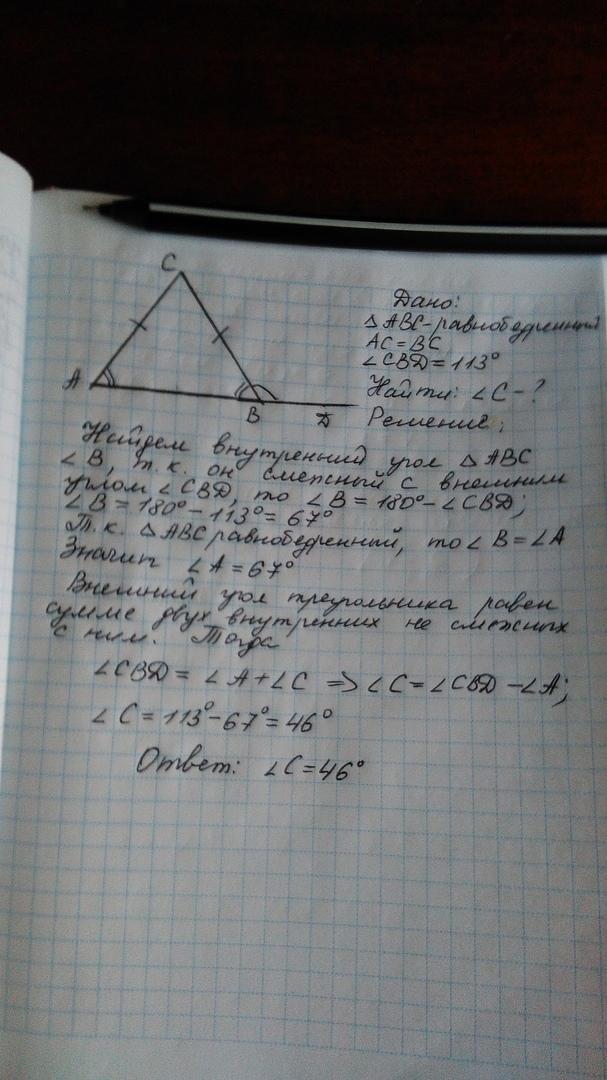 C
A
B
D
Дано:
△ABC-равнобедренный
AC=BC
∠CBD=113°
Найти: ∠C-?
Решение:
Найдем внутренний угол △ABC
∠B, т.к. он смежный с внешним
углом ∠CBD, то ∠B=180°-∠CBD;
∠B=180°-113°=67°
Т.к. △ABC равнобедренный, то ∠B=∠A
Значит ∠A=67°
Внешний угол треугольника равен
сумме двух внутренних не смежных
с ним. Тогда
∠CBD=∠A+∠C => ∠C=∠CBD-∠A;
∠C=113°-67°=46°
Ответ: ∠C=46°